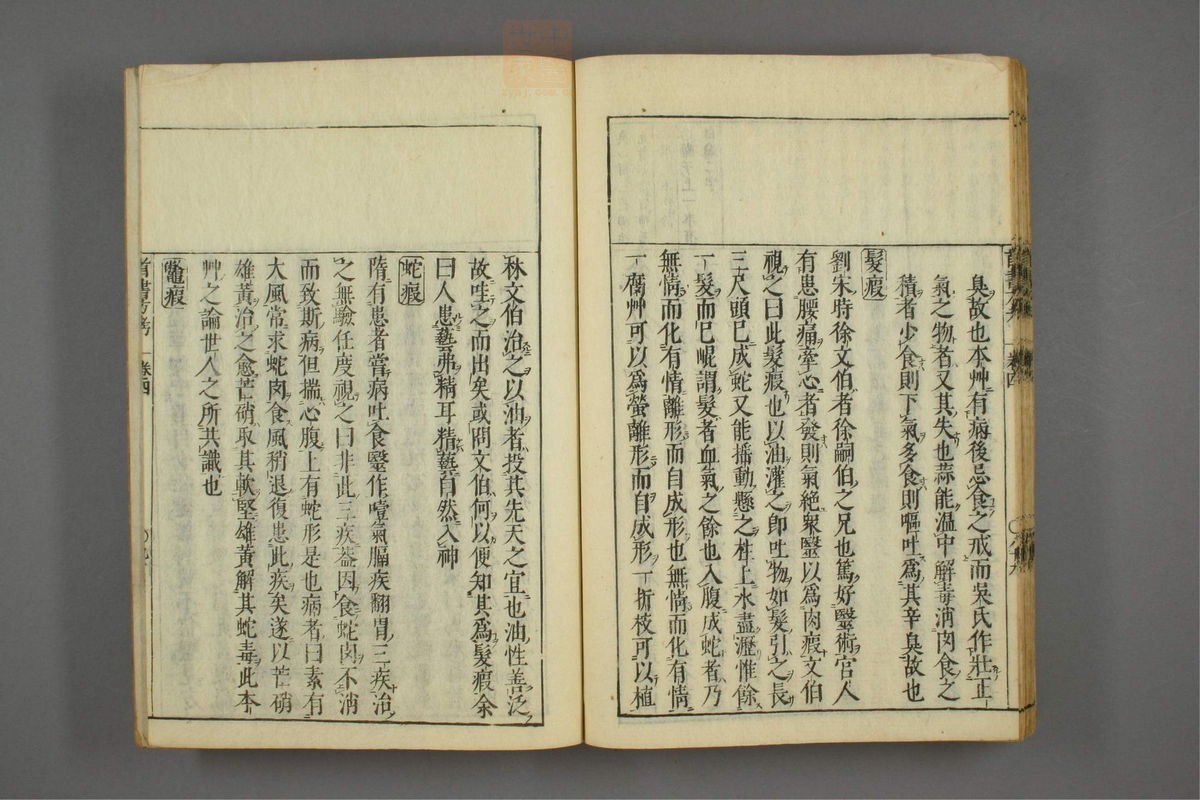 臭故也本艸有病後忌食之戒而吳氏作壯正
氣之物者又其失也蒜能溫中解毒消肉食之
積者少食則下氣多食則嘔吐爲其辛臭故也
髮瘕
劉宋時徐文伯者徐嗣伯之兄也篤好醫術宮人
有患腰痛牽心者發則氣絕衆醫以爲肉瘕文伯
視之曰此髮瘕也以油灌之卽吐物如髮引之長
三尺頭已成蛇又能搖動懸之柱上水盡瀝惟餘
一髮而已崐謂髮者血氣之餘也入腹成蛇者乃
無情而化有情離形而自成形也無情而化有情
一腐艸可以爲螢離形而自成形一折枝可以植
秝文伯治之以油者投其先天之宜也油性善泛
故哇之而出矣或問文伯何以便知其爲髮瘕余
曰人患藝弗精耳精藝自然入神
蛇瘕
隋有患者嘗病吐食醫作噎氣膈疾翻胃三疾治
之無驗任度視之曰非此三疾葢因食蛇肉不消
而致斯病但揣心腹上有蛇形是也病者曰素有
大風常求蛇肉食風稍退復患此疾矣遂以芒硝
雄黃治之愈芒硝取其軟堅雄黃解其蛇毒此本
艸之論世人之所共識也
鼈瘕
卷四